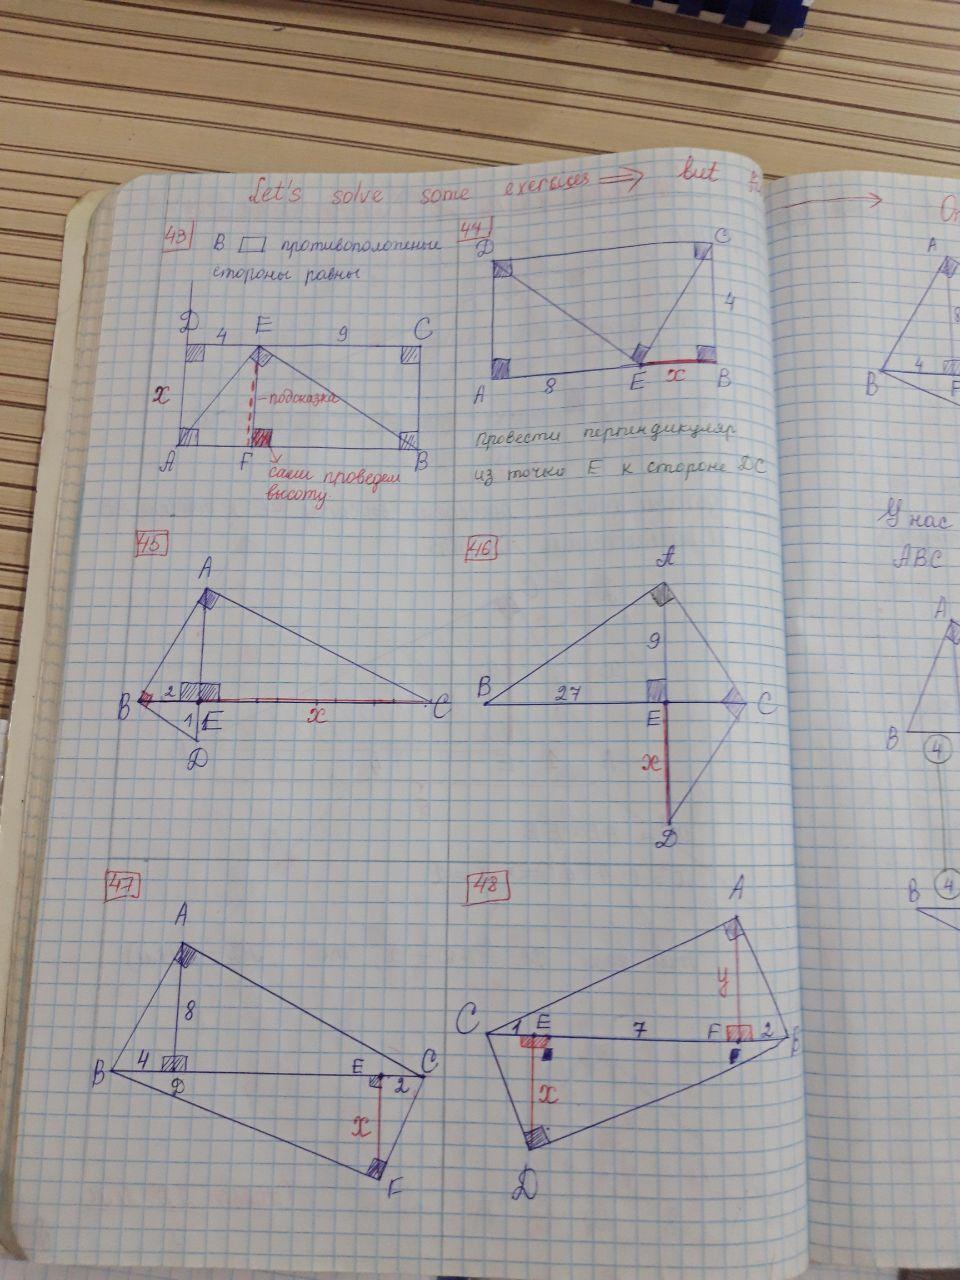 Let's solve some exercises ⟹ but
43 В ▭ противоположные
стороны равны
D 4 E 9 C
x
подсказка
A F B
сами проведём
высоту
44
D C
4
A 8 E x B
Провести перпендикуляр
из точки E к стороне DC
45
A
B 2 E x C
1
D
46
A
9
B 27 E C
x
D
47
A
8
B 4 D E 2 C
x
F
48
A
y
C 1 E 7 F 2 B
x
D
A
8
B 4 F
У нас
ABC
A
B
4
B 4